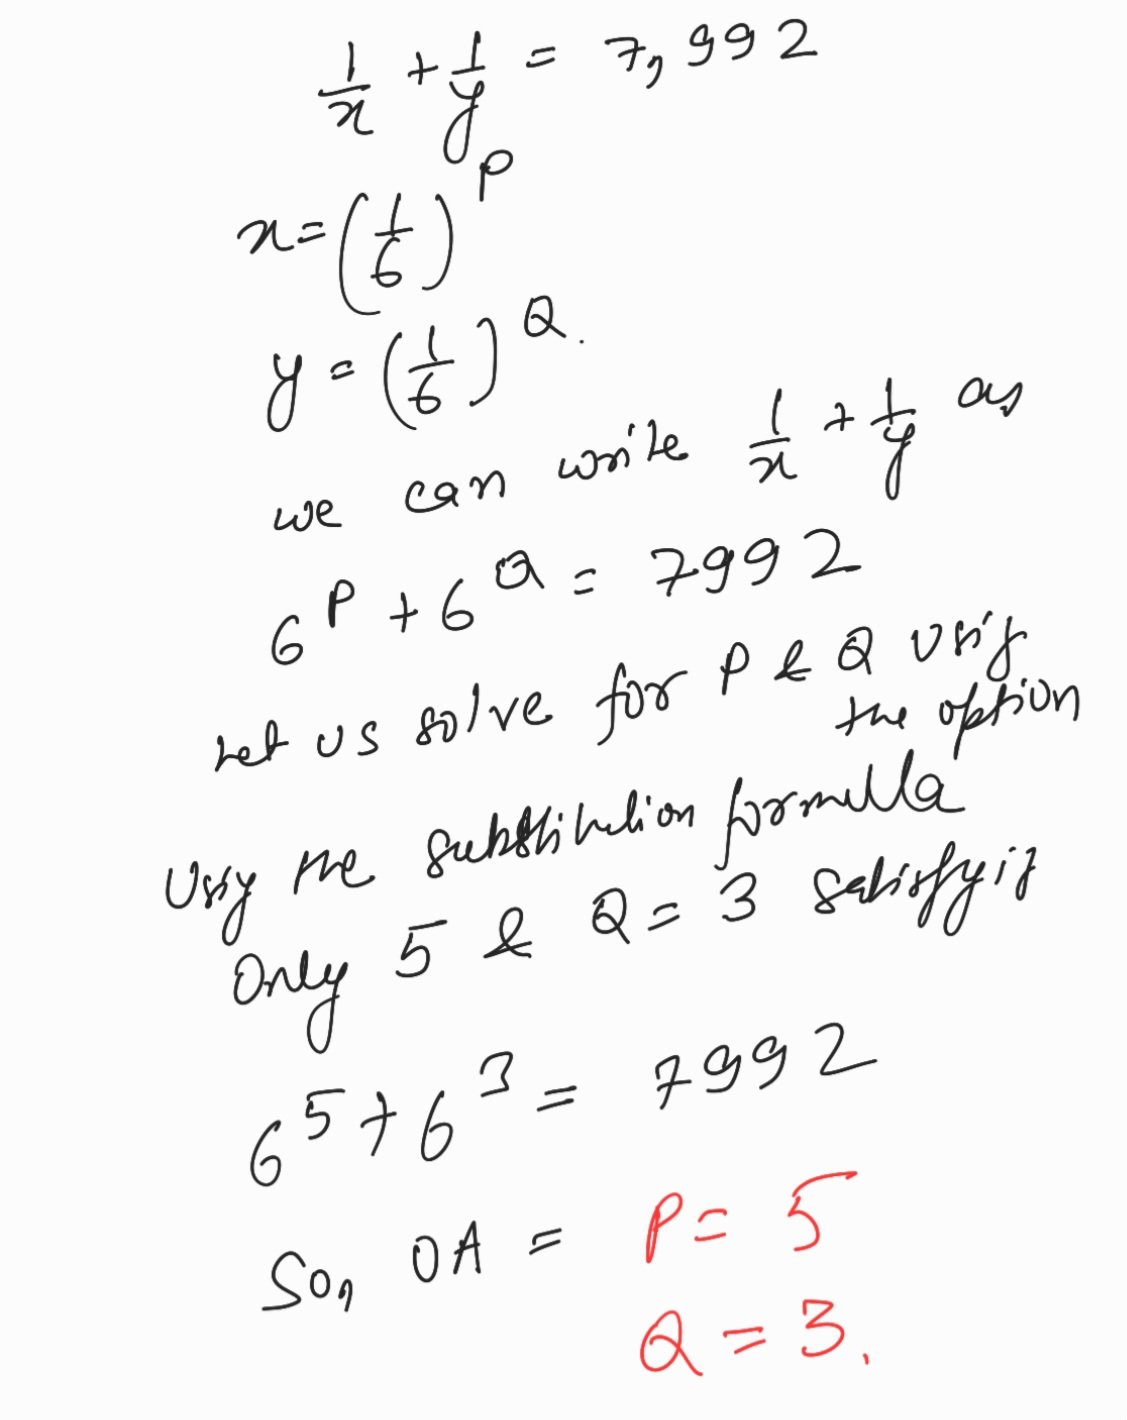 1/x + 1/y = 7,992
x = (1/6)^P
y = (1/6)^Q.
we can write 1/x + 1/y as
6^P + 6^Q = 7992
Let us solve for P & Q using
the option
Using the substitution formulla
Only 5 & Q = 3 satisfying
6^5 + 6^3 = 7992
So, OA = P = 5
Q = 3.